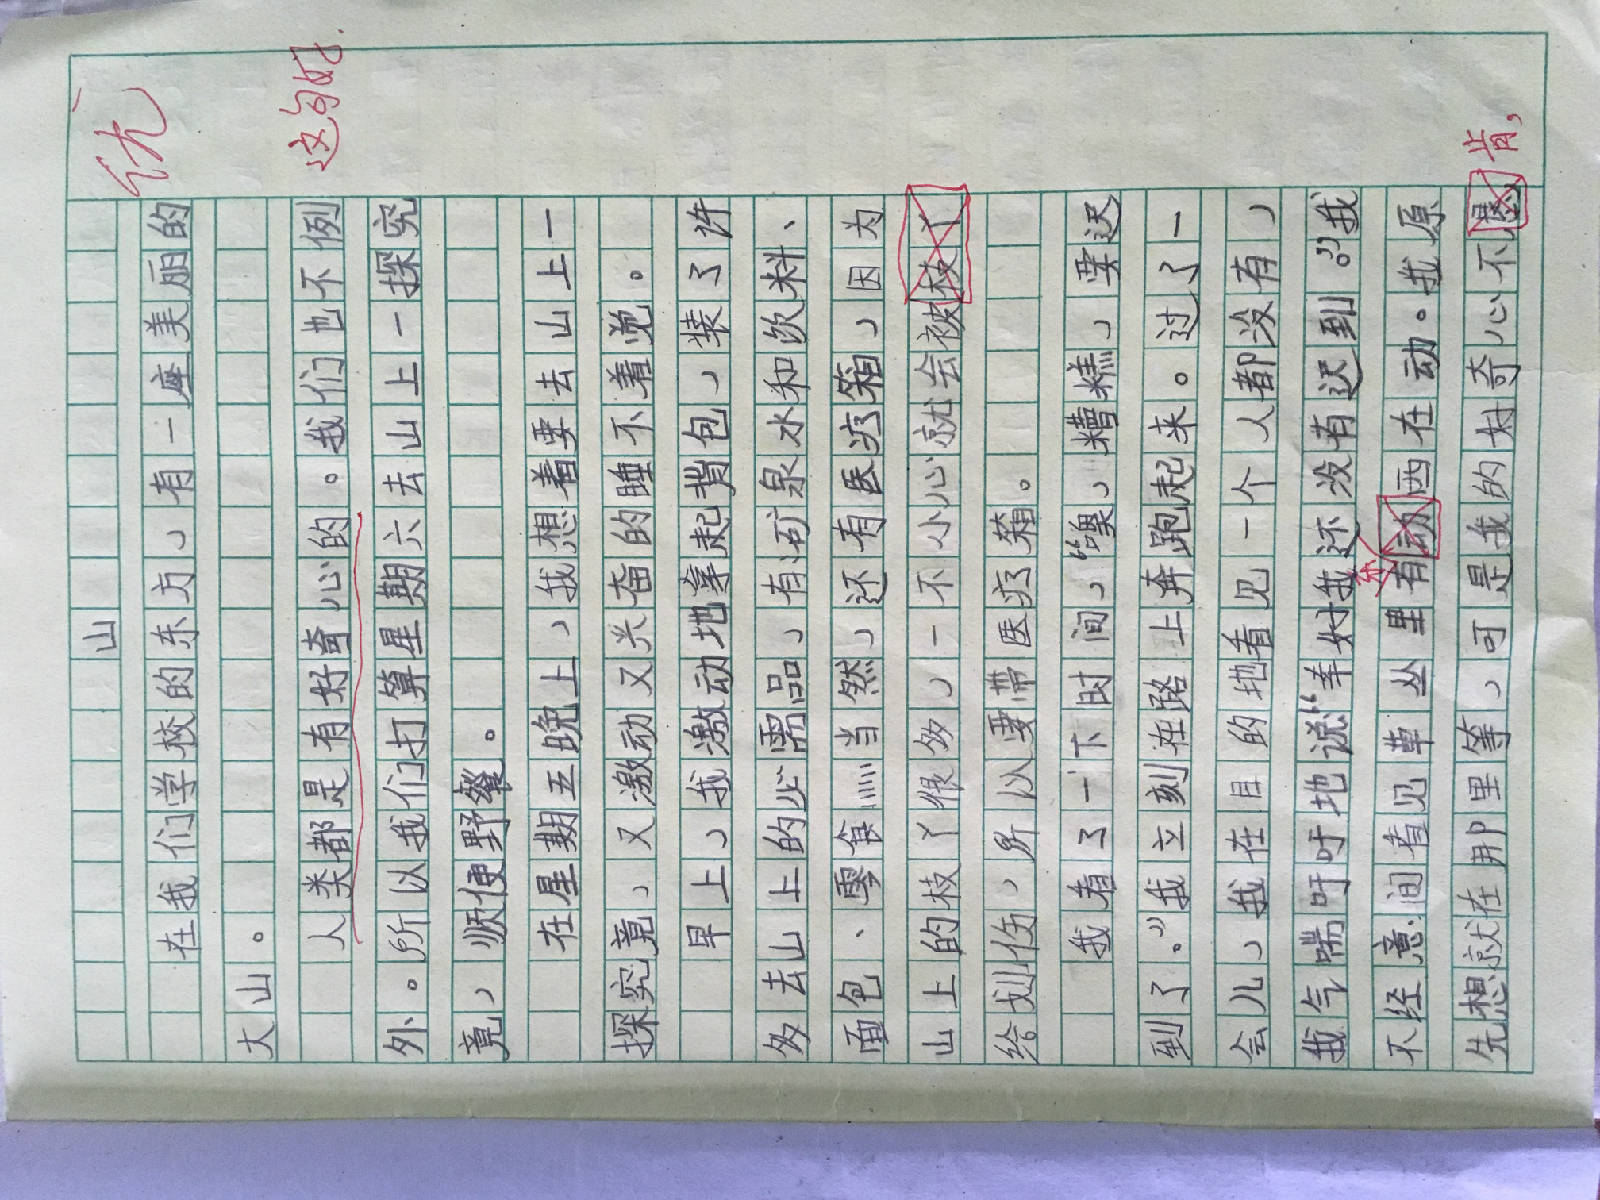 山
在我们学校的东方，有一座美丽的
大山。
人类都是有好奇心的。我们也不例
外。所以我们打算星期六去山上一探究
竟，顺便野餐。
在星期五晚上，我想着要去山上一
探究竟，又激动又兴奋的睡不着觉。
早上，我激动地拿起背包，装了许
多去山上的必需品，有矿泉水和饮料、
面包、零食……当然，还有医疗箱，因为
山上的枝丫很多，一不小心就会被枝丫
给划伤，所以要带医疗箱。
我看了一下时间，“嗅，糟糕，要迟
到了。”我立刻在路上奔跑起来。过了一
会儿，我在目的地看见一个人都没有，
我气喘吁吁地说“幸好我还没有迟到。”我
不经意间看见草丛里有动西在动。我原
东
先想就在那里等，可是我的好奇心不
肯，
优
这句好